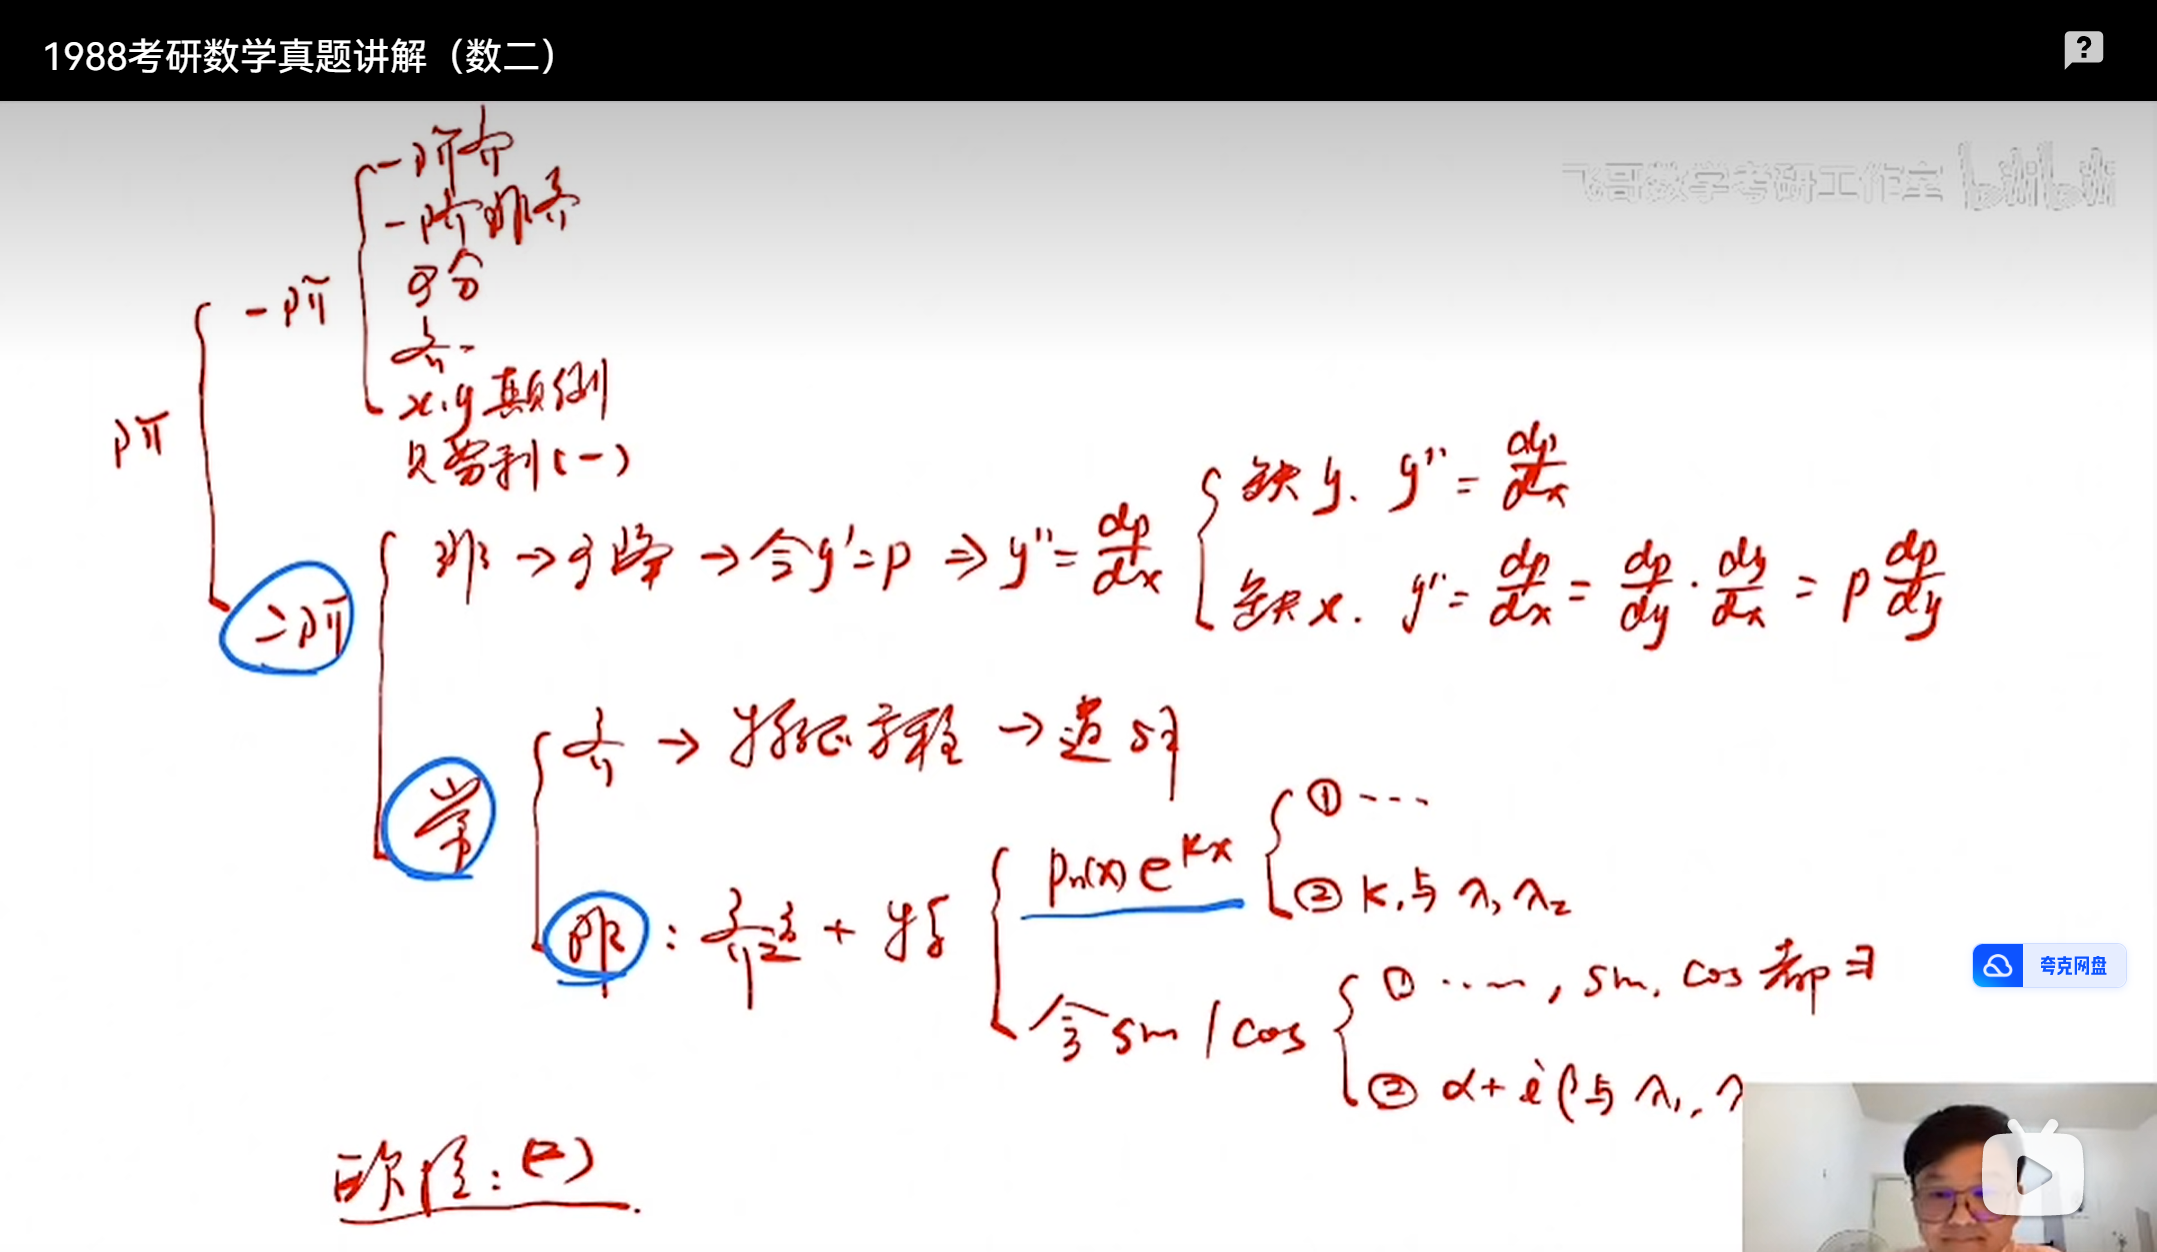 1988考研数学真题讲解（数二）
?
飞哥数学考研工作室 bilibili
一阶齐
一阶非齐
可分
齐
x,y颠倒
贝努利(一)
一阶
阶
二阶
→可降→令y'=p ⇒ y''=dp/dx
缺y. y''=dp/dx
缺x. y''=dp/dx=dp/dy·dy/dx=p dp/dy
常
齐→特征方程→通
非: 齐通+特
Pn(x)e^{kx}
① ---
② k,与λ1λ2
含sin/cos
① ..., sin, cos都
② α+iβ与λ1,λ
夸克网盘
欧拉:(二).